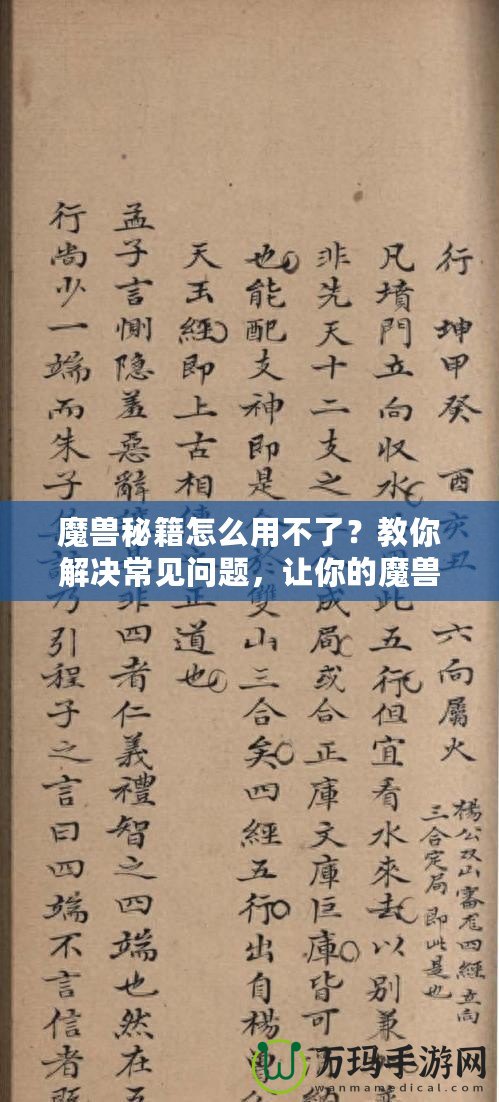 行　坤甲癸　酉亥丑　六向屬火
楊公双山審龙四經立向
三合定局即此是也
凡墳門立向收水 此五行但宜看水來去以別兼
非先天十二支之 成局或合正庫文庫巨庫皆可
也能配支神即是 於雙山三合矣四經五行出自楊曾
天玉經即上古相 正道也
孟子言惻隐羞惡辭 非四者仁義禮智之四端也然在五
行尚少一端而朱子 乃引程子之言曰四端不言信者既
魔兽秘籍怎么用不了？教你
解决常见问题，让你的魔兽
万玛手游网
www.wanmamedical.com